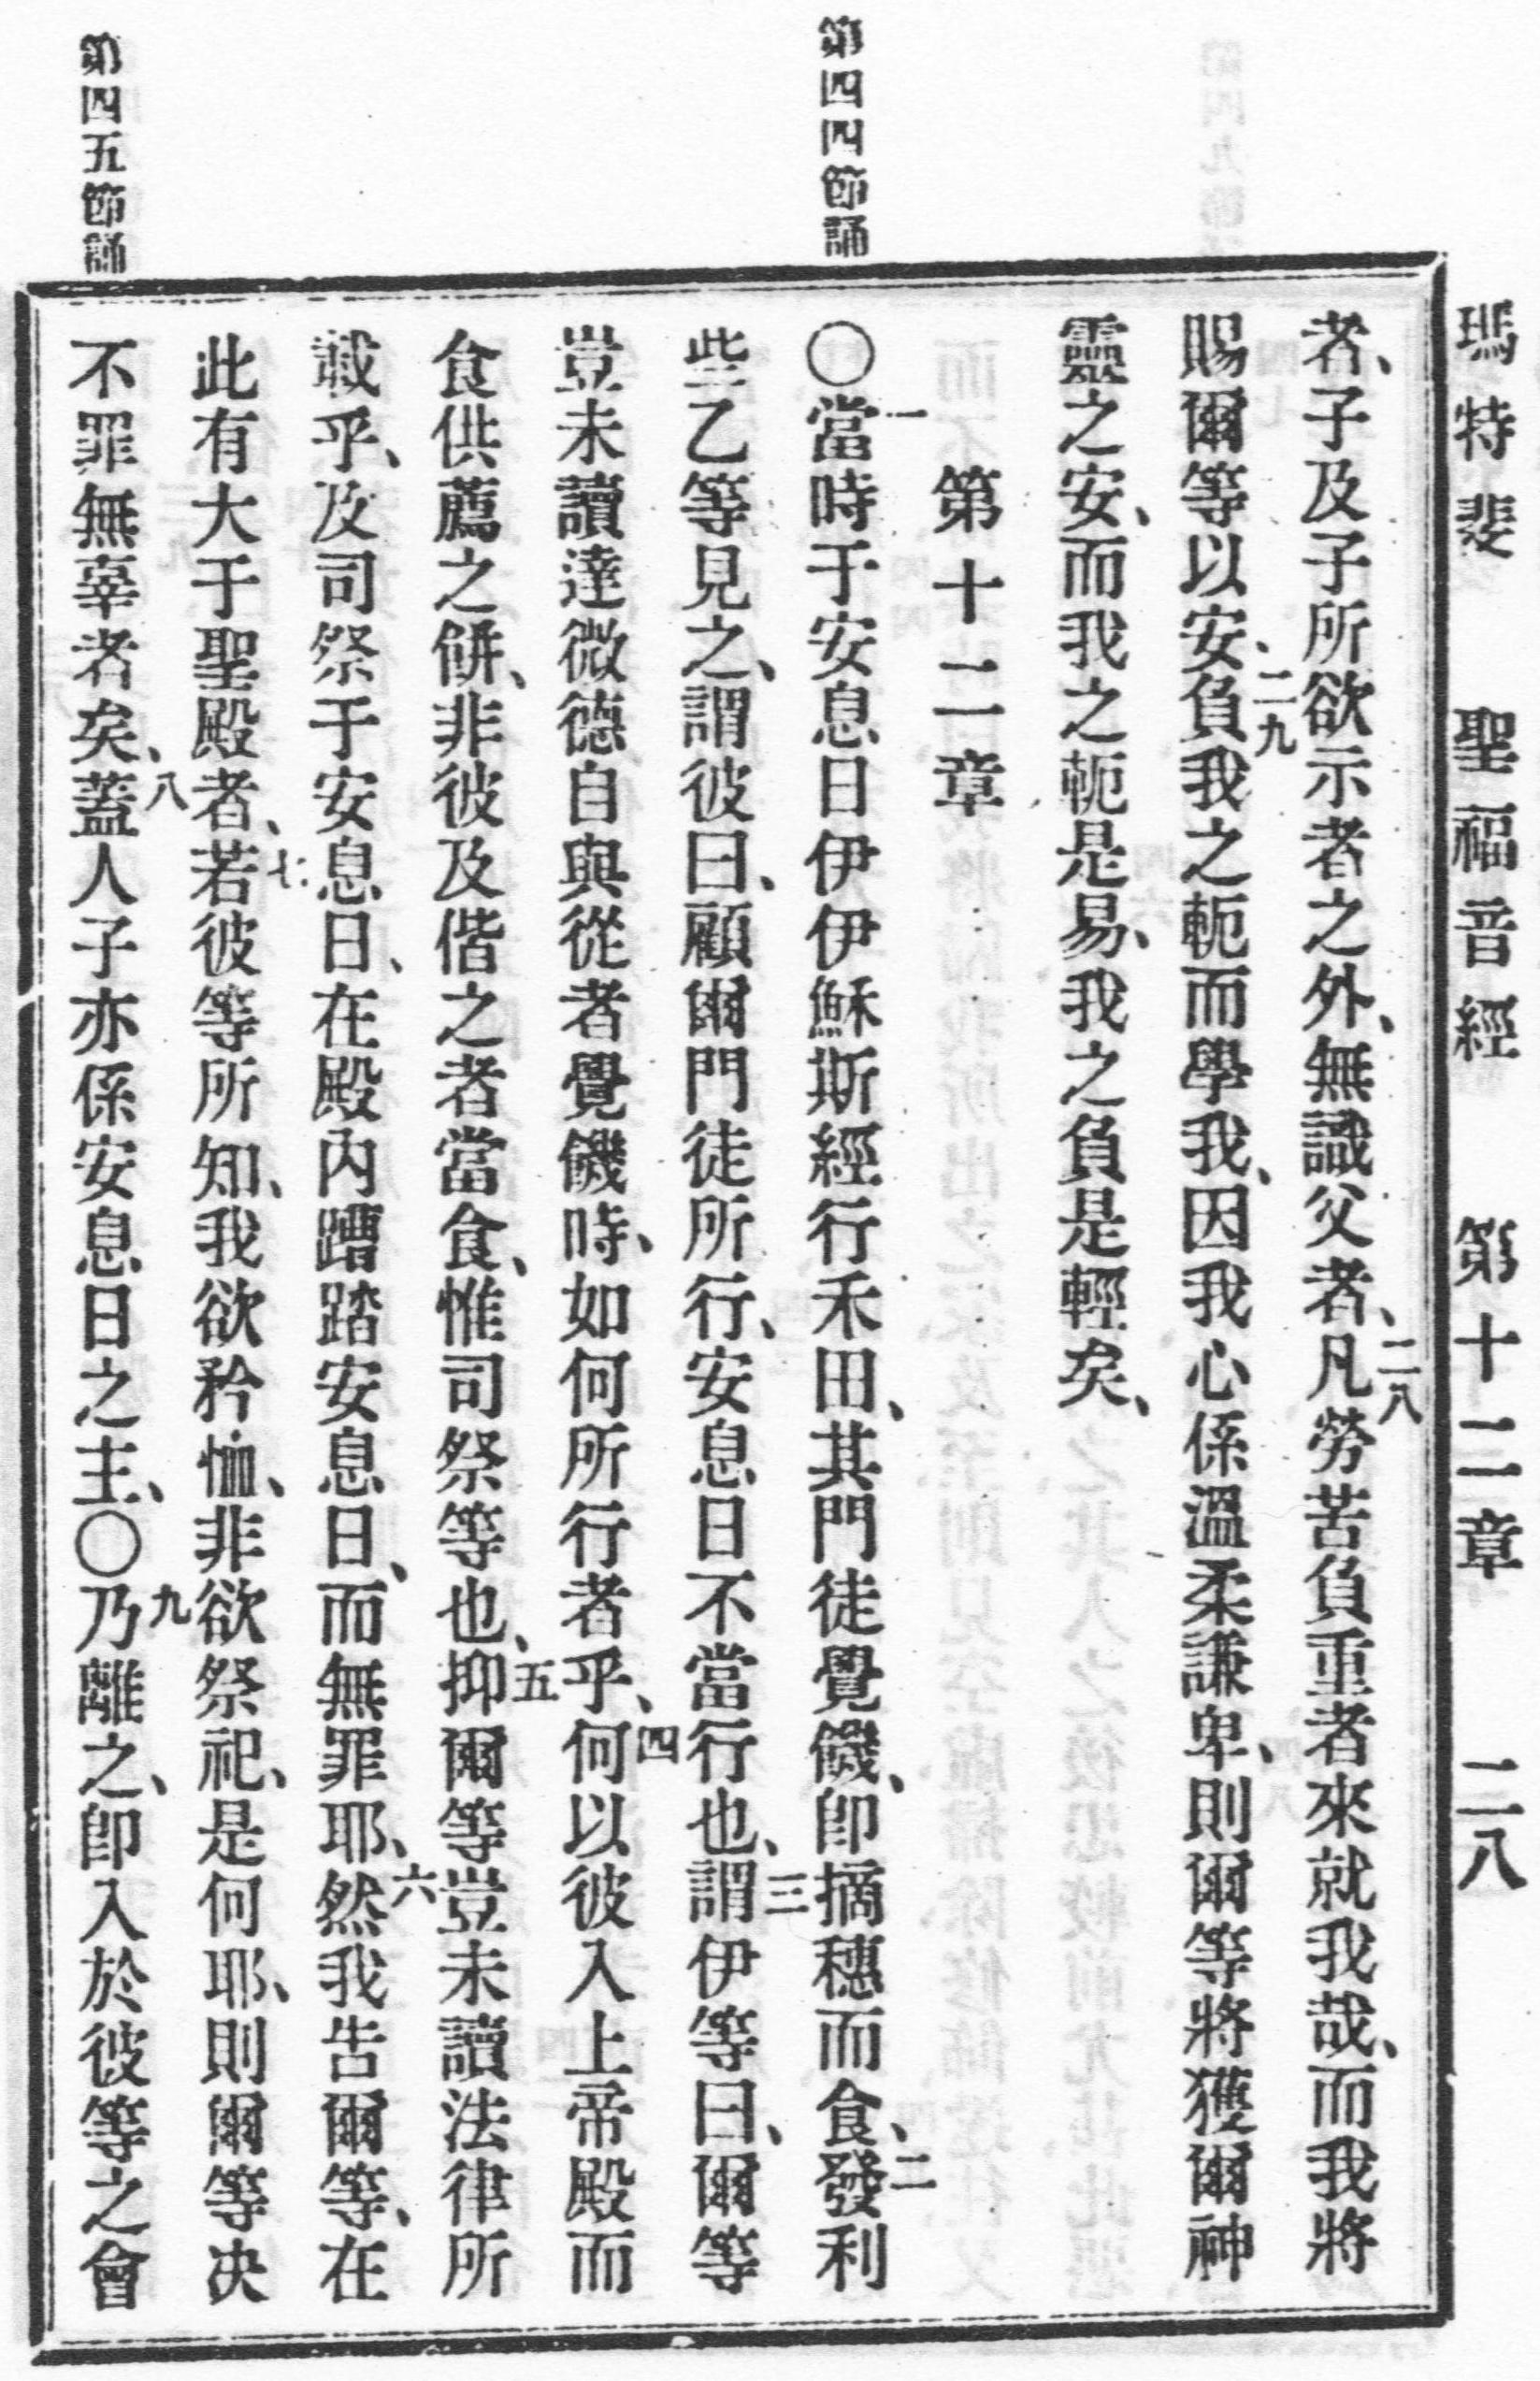 瑪特斐 聖福音經 第十二章 二八
者、子及子所欲示者之外、無識父者、二八凡勞苦負重者來就我哉、而我將
賜爾等以安、二九負我之軛而學我、因我心係溫柔謙卑、則爾等將獲爾神
靈之安、而我之軛是易、我之負是輕矣、
第十二章
第四四節誦
〇一當時于安息日伊伊穌斯經行禾田、其門徒覺饑、卽摘穗而食、二發利
些乙等見之、謂彼曰、顧爾門徒所行、安息日不當行也、三謂伊等曰、爾等
豈未讀達微德自與從者覺饑時、如何所行者乎、四何以彼入上帝殿而
食供薦之餅、非彼及偕之者當食、惟司祭等也、五抑爾等豈未讀法律所
載乎、及司祭于安息日、在殿內蹧踏安息日、而無罪耶、六然我告爾等、在
此有大于聖殿者、七若彼等所知、我欲矜恤、非欲祭祀、是何耶、則爾等决
第四五節誦
不罪無辜者矣、八蓋人子亦係安息日之主、〇九乃離之、卽入於彼等之會